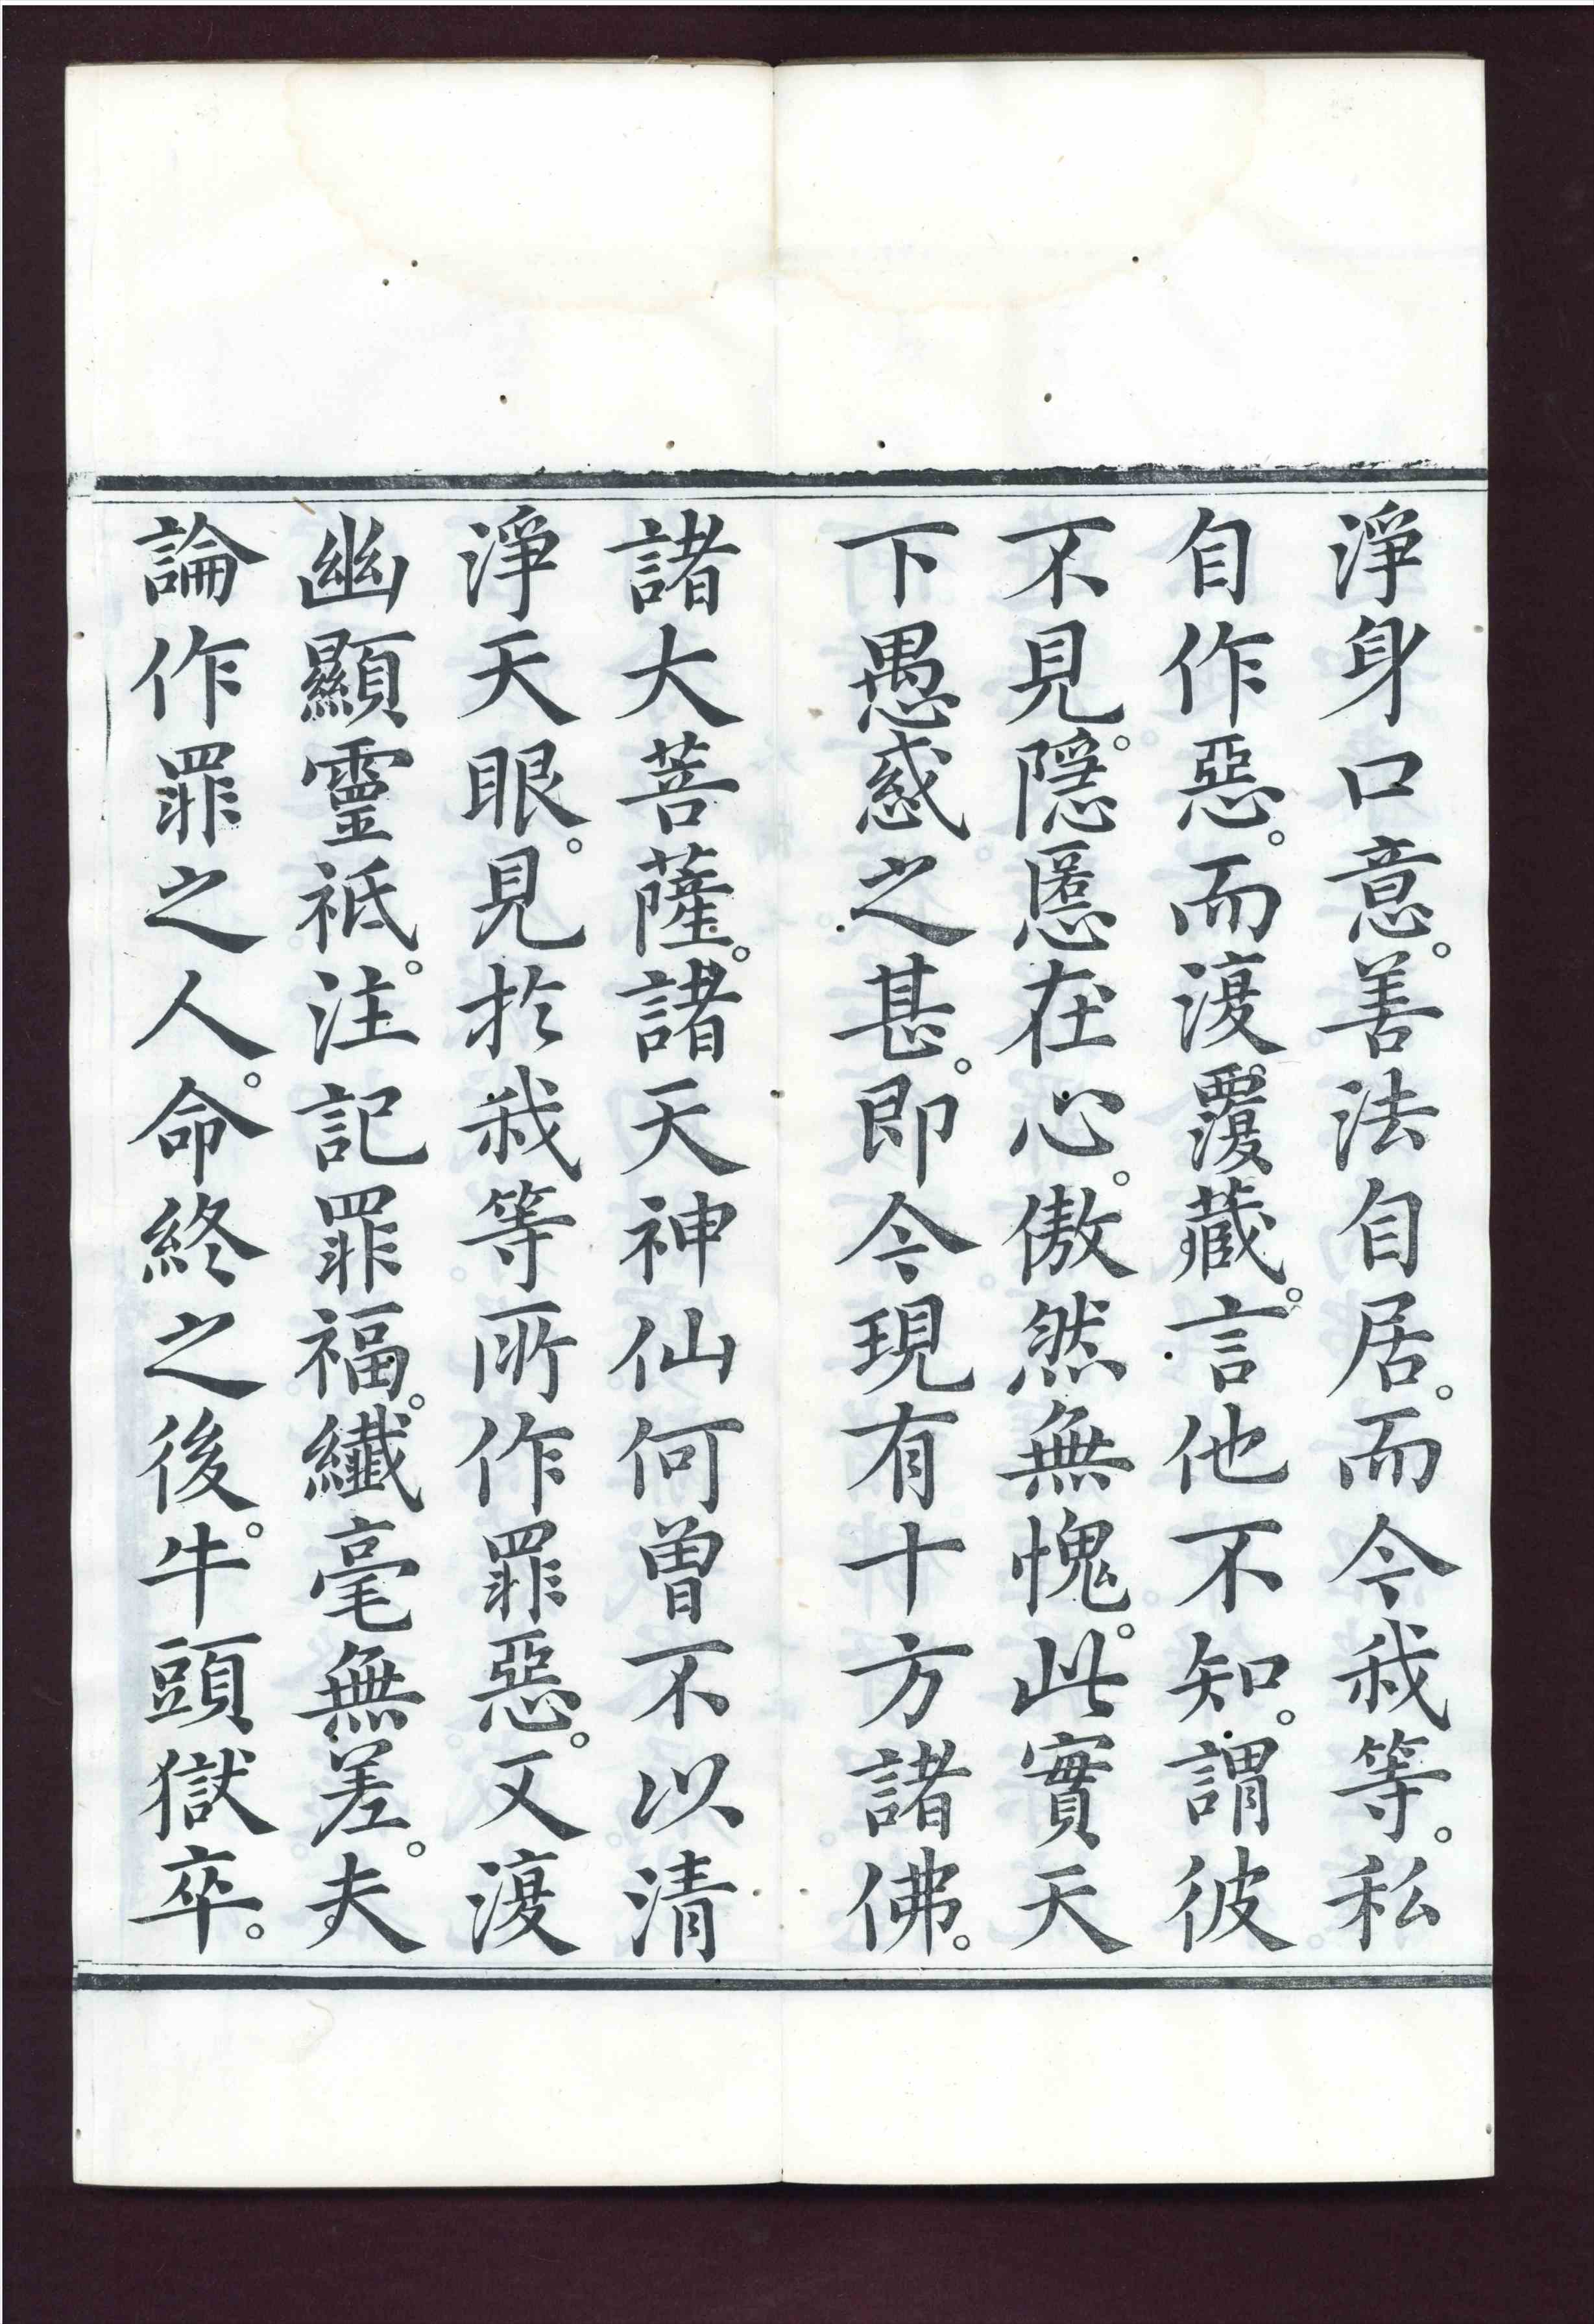 淨身口意。善法自居。而今我等。私
自作惡。而復覆藏。言他不知。謂彼
不見。隱慝在心。傲然無愧。此實天
下愚惑之甚。即今現有十方諸佛。
諸大菩薩。諸天神仙何曾不以清
淨天眼。見於我等所作罪惡。又復
幽顯靈祇。注記罪福。纖毫無差。夫
論作罪之人。命終之後。牛頭獄卒。